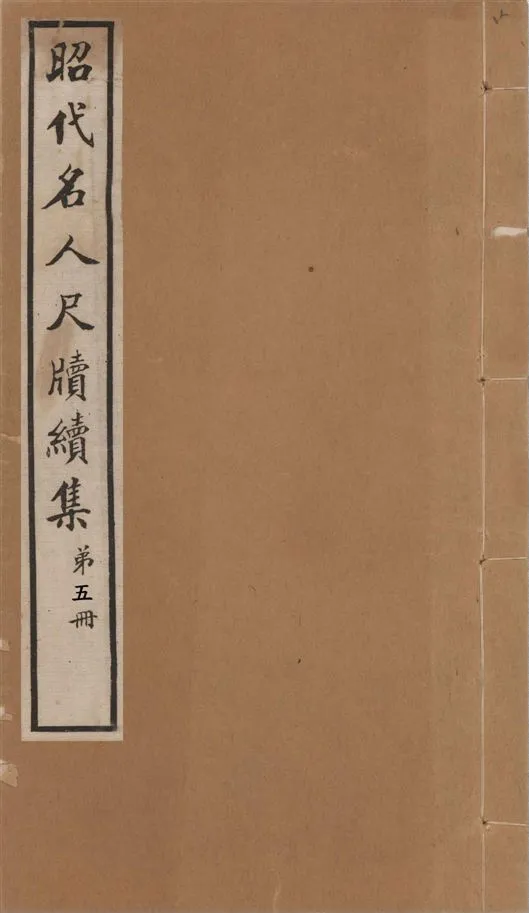 昭代名人尺牘續集
弟五冊